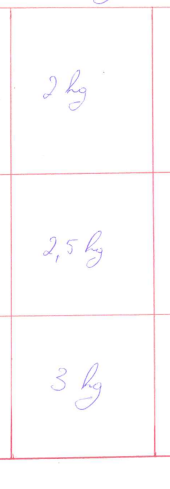 2 kg
2,5 kg
3 kg